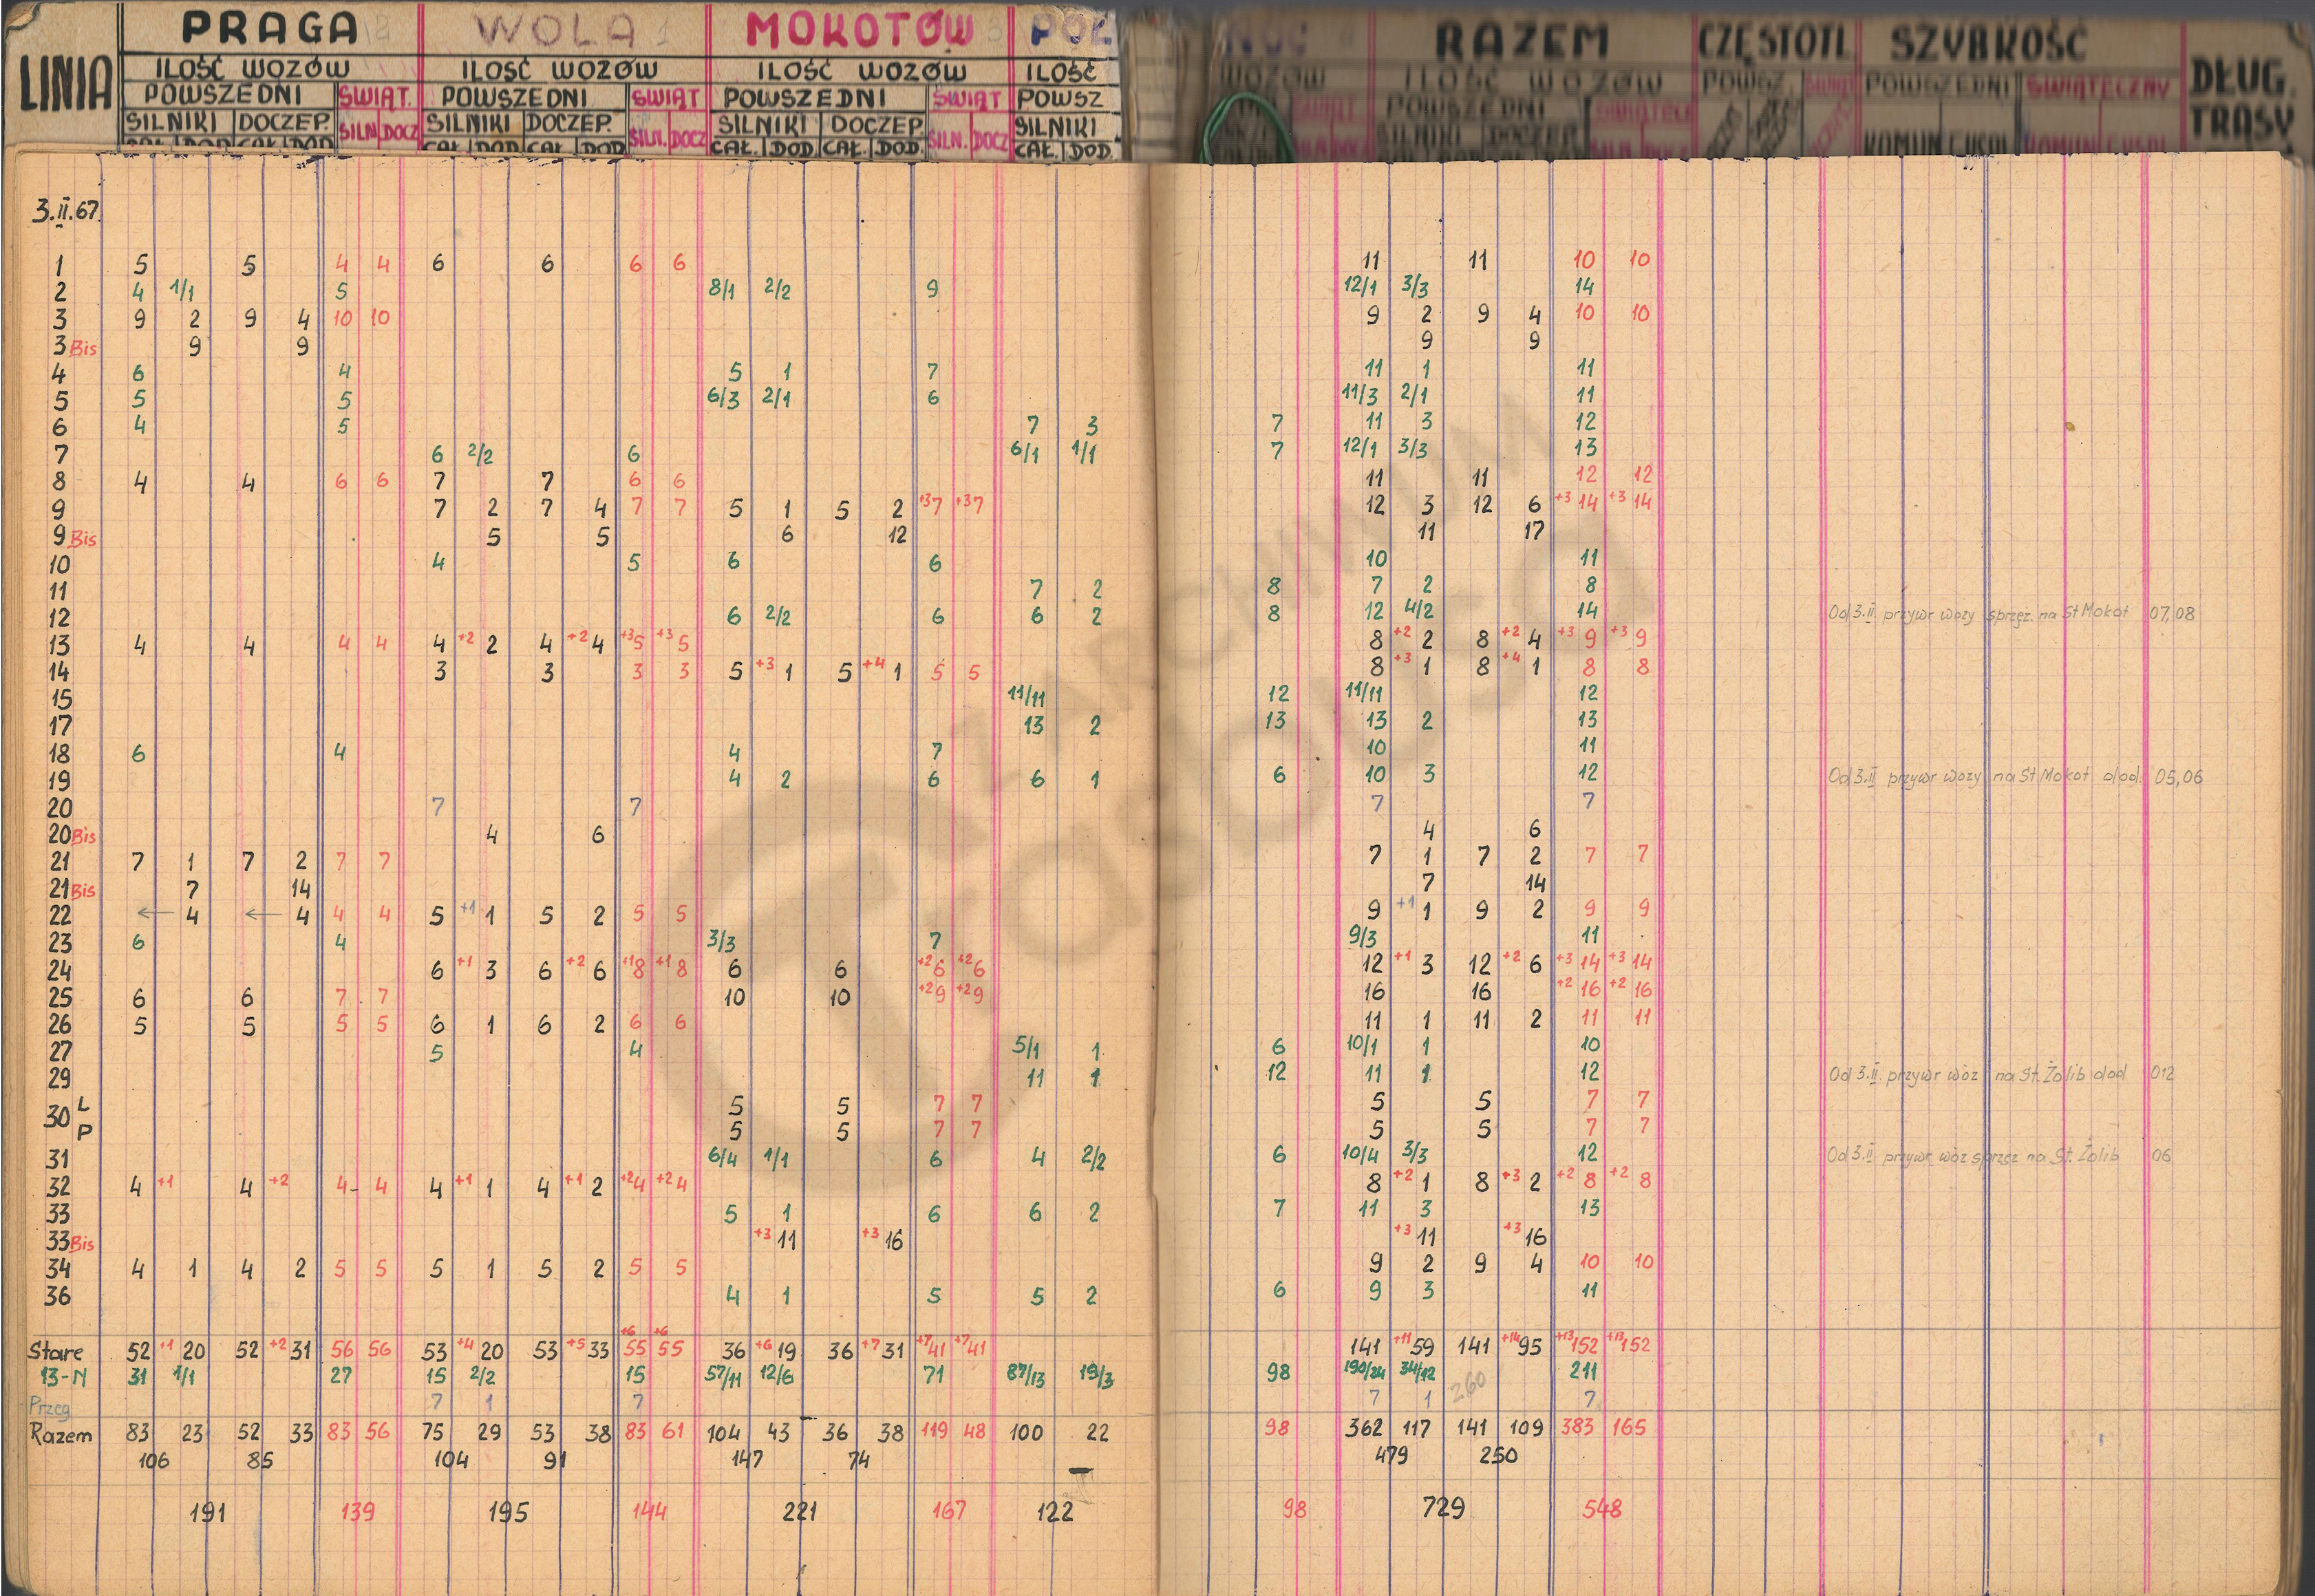 LINIA PRAGA WOLA MOKOTÓW RAZEM CZĘSTOTL SZYBKOŚĆ DŁUG. TRASY
ILOŚĆ WOZÓW ILOŚĆ WOZÓW ILOŚĆ WOZÓW ILOŚĆ WOZÓW ILOŚĆ WOZÓW
POWSZEDNI ŚWIĄT. POWSZEDNI ŚWIĄT POWSZEDNI ŚWIĄT POWSZ POWSZEDNI POWSZ. POWSZEDNI ŚWIĄTECZNY
SILNIKI DOCZEP. SILN. DOCZ SILNIKI DOCZEP. SILN. DOCZ SILNIKI DOCZEP. SILN. DOCZ SILNIKI SILNIKI DOCZEP
CAŁ. DOD. CAŁ. DOD. CAŁ. DOD. CAŁ. DOD. CAŁ. DOD. CAŁ. DOD. CAŁ. DOD.
3.II.67.
1 5 5 4 4 6 6 6 6 11 11 10 10
2 4 1/1 5 8/1 2/2 9 12/1 3/3 14
3 9 2 9 4 10 10 9 2 9 4 10 10
3 Bis 9 9 9 9
4 6 4 5 1 7 11 1 11
5 5 5 6/3 2/1 6 11/3 2/1 11
6 4 5 7 3 7 11 3 12
7 6 2/2 6 6/1 1/1 7 12/1 3/3 13
8 4 4 6 6 7 7 6 6 11 11 12 12
9 7 2 7 4 7 7 5 1 5 2 +3 7 +3 7 12 3 12 6 +3 14 +3 14
9 Bis 5 5 6 12 11 17
10 4 5 6 6 10 11
11 7 2 8 7 2 8
12 6 2/2 6 6 2 8 12 4/2 14 Od 3.II. przywr wozy sprzęż. na St Mokot 07,08
13 4 4 4 4 4 +2 2 4 +2 4 +3 5 +3 5 8 +2 2 8 +2 4 +3 9 +3 9
14 3 3 3 3 5 +3 1 5 +4 1 5 5 8 +3 1 8 +4 1 8 8
15 11/11 12 11/11 12
17 13 2 13 13 2 13
18 6 4 4 7 10 11
19 4 2 6 6 1 6 10 3 12 Od 3.II przywr wozy na St Mokot dod. 05,06
20 7 7 7 7
20 Bis 4 6 4 6
21 7 1 7 2 7 7 7 1 7 2 7 7
21 Bis 7 14 7 14
22 ← 4 ← 4 4 4 5 +1 1 5 2 5 5 9 +1 1 9 2 9 9
23 6 4 3/3 7 9/3 11
24 6 +1 3 6 +2 6 +1 8 +1 8 6 6 +2 6 +2 6 12 +1 3 12 +2 6 +3 14 +3 14
25 6 6 7 7 10 10 +2 9 +2 9 16 16 +2 16 +2 16
26 5 5 5 5 6 1 6 2 6 6 11 1 11 2 11 11
27 5 4 5/1 1 6 10/1 1 10
29 11 1 12 11 1 12 Od 3.II. przywr wóz na St. Żolib dod 012
30 L 5 5 7 7 5 5 7 7
P 5 5 7 7 5 5 7 7
31 6/4 1/1 6 4 2/2 6 10/4 3/3 12 Od 3.II przywr wóz sprzęż na St. Żolib 06
32 4 +1 4 +2 4 4 4 +1 1 4 +1 2 +2 4 +2 4 8 +2 1 8 +3 2 +2 8 +2 8
33 5 1 6 6 2 7 11 3 13
33 Bis +3 11 +3 16 +3 11 +3 16
34 4 1 4 2 5 5 5 1 5 2 5 5 9 2 9 4 10 10
36 4 1 5 5 2 6 9 3 11
Stare 52 +1 20 52 +2 31 56 56 53 +4 20 53 +5 33 +6 55 +6 55 36 +6 19 36 +7 31 +7 41 +7 41 141 +11 59 141 +14 95 +13 152 +13 152
13-N 31 1/1 27 15 2/2 15 57/11 12/6 71 87/13 19/3 98 190/24 34/12 211
Przeg 7 1 7 7 1 260 7
Razem 83 23 52 33 83 56 75 29 53 38 83 61 104 43 36 38 119 48 100 22 98 362 117 141 109 383 165
106 85 104 91 147 74 479 250
191 139 195 144 221 167 122 98 729 548